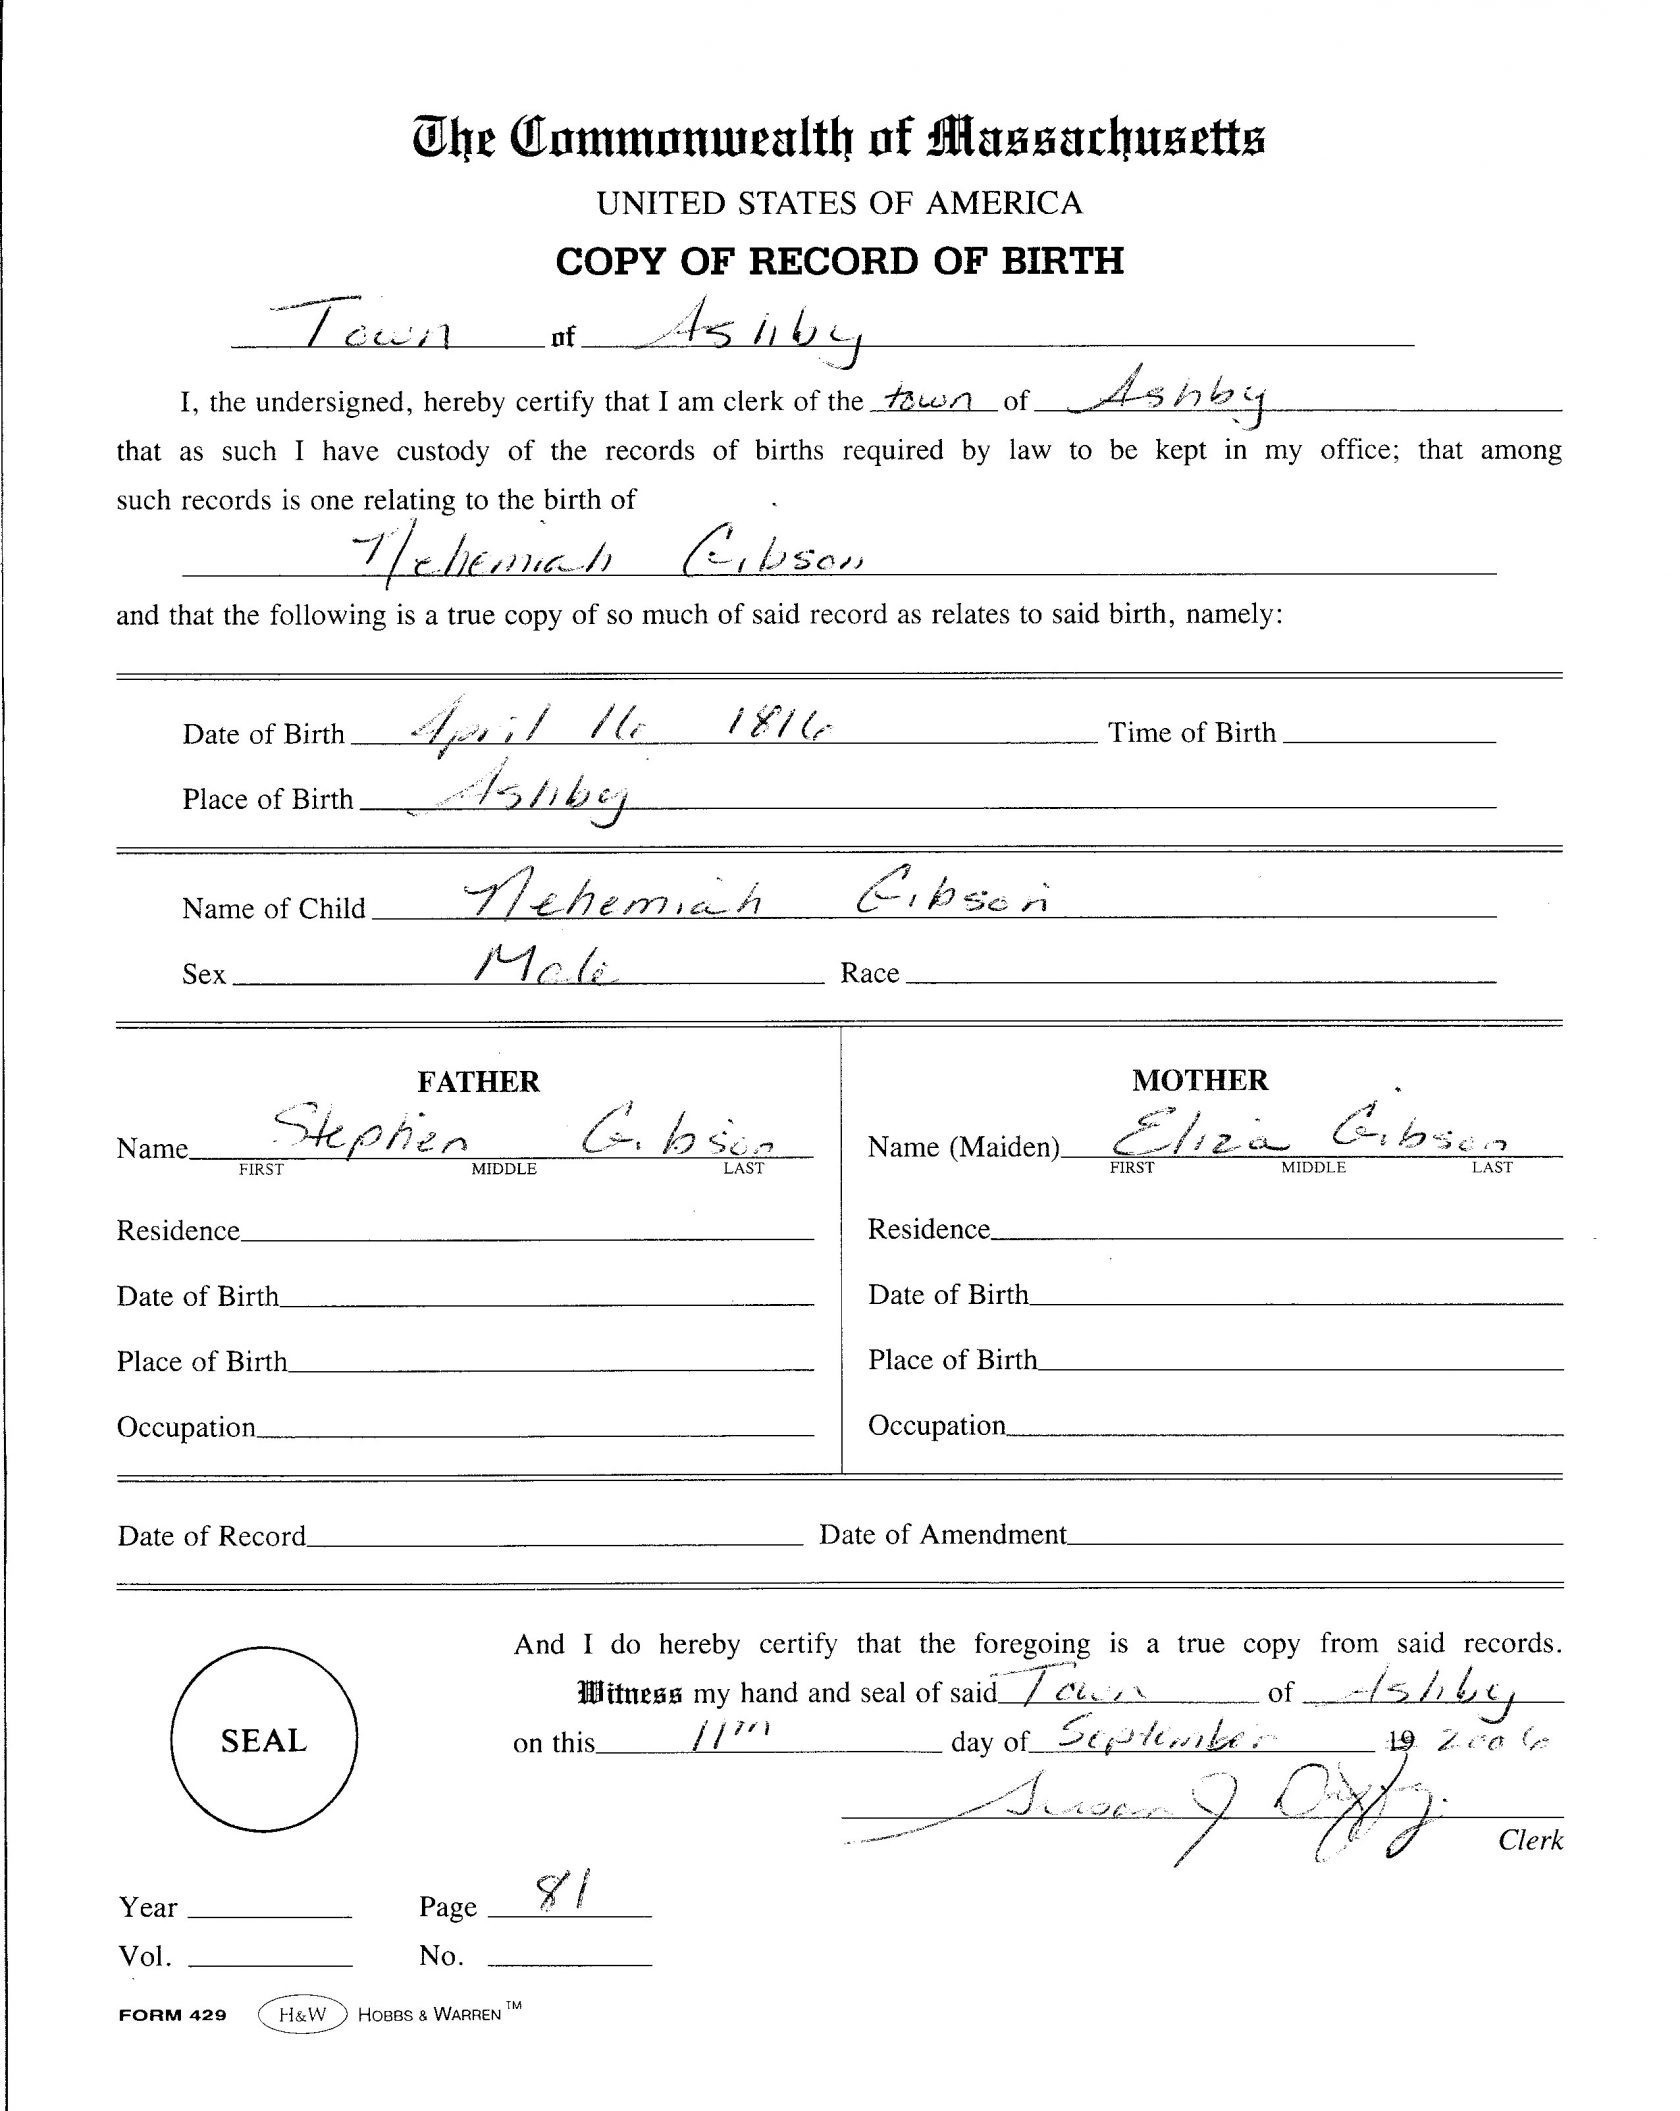 The Commonwealth of Massachusetts
UNITED STATES OF AMERICA
COPY OF RECORD OF BIRTH
Town of Ashby
I, the undersigned, hereby certify that I am clerk of the town of Ashby
that as such I have custody of the records of births required by law to be kept in my office; that among
such records is one relating to the birth of
Nehemiah Gibson
and that the following is a true copy of so much of said record as relates to said birth, namely:
Date of Birth April 16 1816 Time of Birth
Place of Birth Ashby
Name of Child Nehemiah Gibson
Sex Male Race
FATHER MOTHER
Name Stephen Gibson Name (Maiden) Eliza Gibson
FIRST MIDDLE LAST FIRST MIDDLE LAST
Residence Residence
Date of Birth Date of Birth
Place of Birth Place of Birth
Occupation Occupation
Date of Record Date of Amendment
And I do hereby certify that the foregoing is a true copy from said records.
Witness my hand and seal of said Town of Ashby
SEAL on this 11th day of September 19 2006
Susan J
Clerk
Year Page 81
Vol. No.
FORM 429 H&W HOBBS & WARREN™